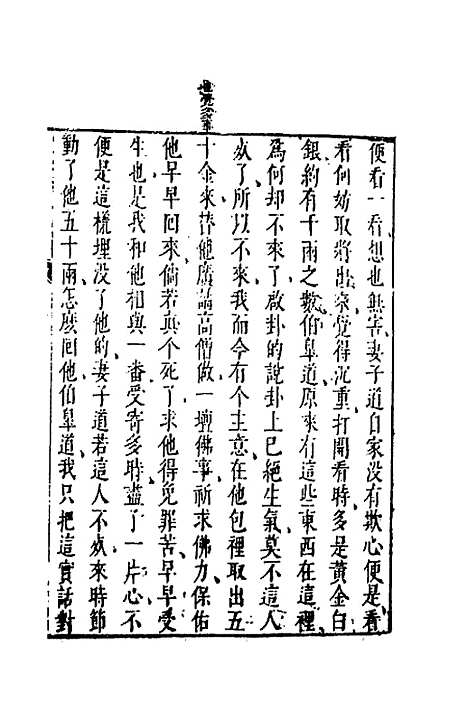 便看一看想也無害妻子道自家沒有欺心便是看
看何妨取將出來覺得沉重打開看時多是黃金白
銀約有千兩之數伯皐道原來有這些東西在這裡
爲何却不來了啟卦的說卦上已絕生氣莫不這人
死了所以不來我而今有个主意在他包裡取出五
十金來替他廣請高僧做一壇佛事祈求佛力保佑
他早早回來倘若眞个死了求他得免罪苦早早受
生也是我和他相與一番受寄多時盡了一片心不
便是這樣埋没了他的妻子道若這人不死來時節
動了他五十兩怎麼回他伯皐道我只把這實話對